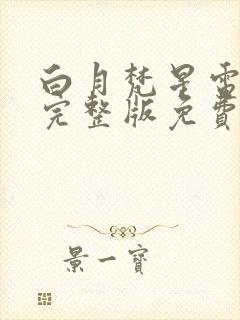 白月梵星電
完整版免費
景一寶